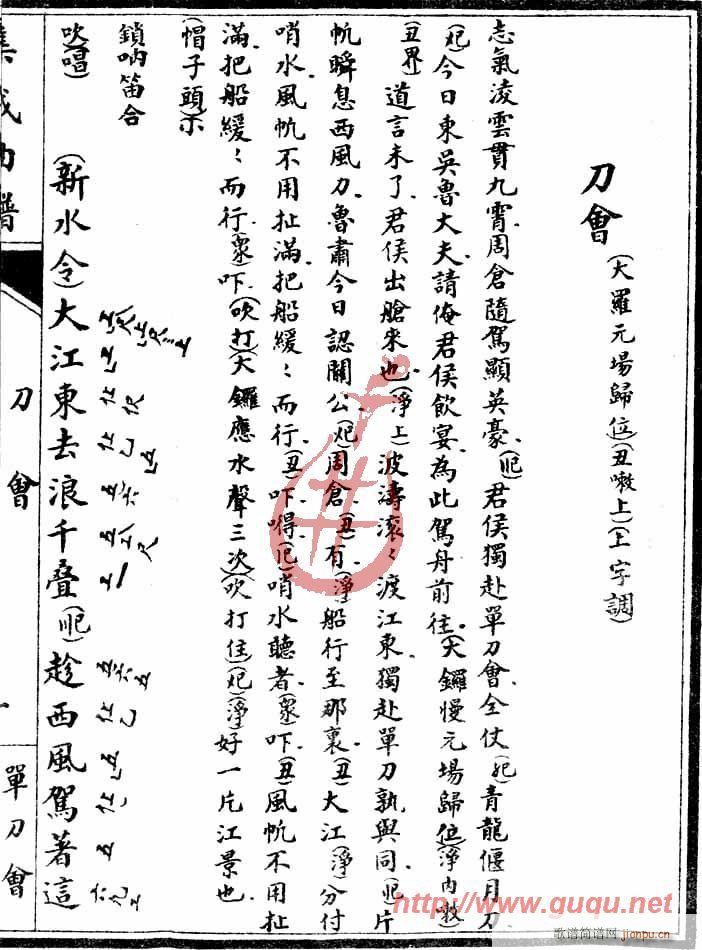 刀會
(大羅元場歸位)(丑嗷上)(上字調)
志氣淩雲貫九霄周倉隨駕顯英豪(吜)君侯獨赴單刀會全仗(吜)青龍偃月刀
(吜)今日東吳魯大夫請俺君侯飲宴為此駕舟前往(大鑼慢元場歸位)(淨內
(丑界)道言未了君侯出艙來也(淨上)波濤滾〻渡江東獨赴單刀孰與同(吜)片
帆瞬息西風刀魯肅今日認關公(吜)周倉(丑)有(淨)船行至那裏(丑)大江(淨)分付
哨水風帆不用扯滿把船緩〻而行(丑)吓嘚(吜)哨水聽者(眾)吓(丑)風帆不用扯
滿把船緩〻而行(眾)吓(吹打)(大鑼應水聲三次)(吹打住)(吜)(淨)好一片江景也
(帽子頭)
鎖吶笛合
吹唱
(新水令)大江東去浪千叠(吜)趁西風駕著這
集成曲譜
刀會
單刀會
http://www.guqu.net
歌谱简谱网
jianpu.cn